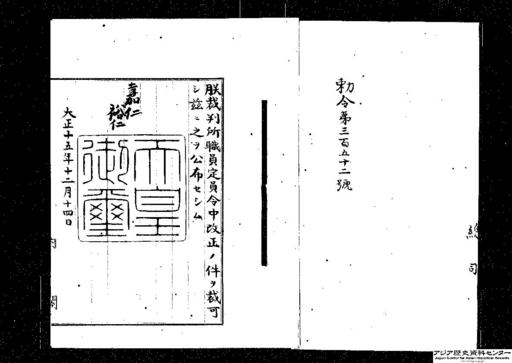 勅令第三百五十二號
朕裁判所職員定員令中改正ノ件ヲ裁可
シ茲ニ之ヲ公布セシム
嘉仁
裕仁
天皇
御璽
大正十五年十二月十四日
内閣
アジア歴史資料センター
Japan Center for Asian Historical Records